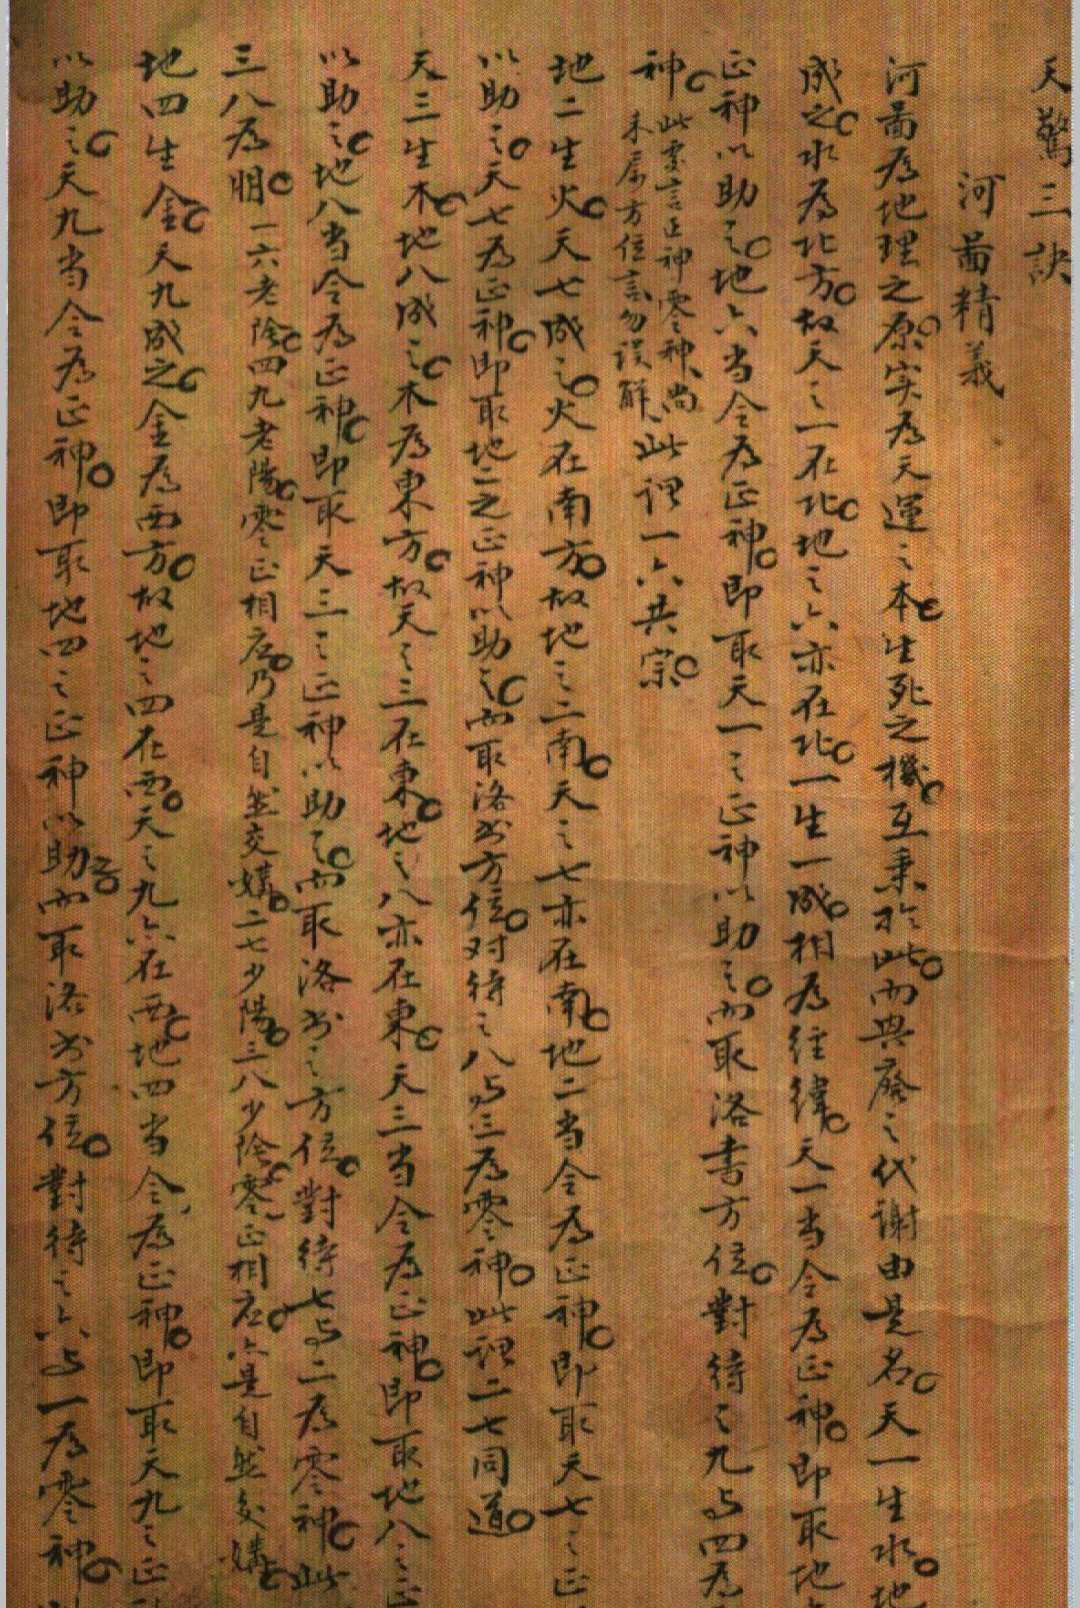 天驚三訣
河啚精義
河啚為地理之原。实為天運之本。生死之機。互乗於此。而興廢之代謝由是名。天一生水。地
成之。水為北方。故天之一在北。地之六亦在北。一生一成。相為经緯。天一当令為正神。即取地
正神以助之。地六当令為正神。即取天一之正神以助之。而取洛書方位。對待之九与四為
神。此雲言正神零神、尚
未属方位言、勿误解、此谓一六共宗。
地二生火。天七成之。火在南方。故地之二南。天之七亦在南。地二当令為正神。即取天七之正
以助之。天七為正神。即取地二之正神以助之。而取洛书方位。对待之八与三為零神。此谓二七同道。
天三生木。地八成之。木為東方。故天之三在東。地之八亦在東。天三当令為正神。即取地八之正
以助之。地八当令為正神。即取天三之正神以助之。而取洛书之方位。對待七与二為零神。此
三八為朋。一六老陰。四九老陽。零正相应。乃是自然交媾。二七少陽。三八少陰。零正相应。亦是自然交媾。
地四生金。天九成之。金為西方。故地之四在西。天之九亦在西。地四当令為正神。即取天九之正
以助之。天九当令為正神。即取地四之正神以助。而取洛书方位。對待之六与一為零神。